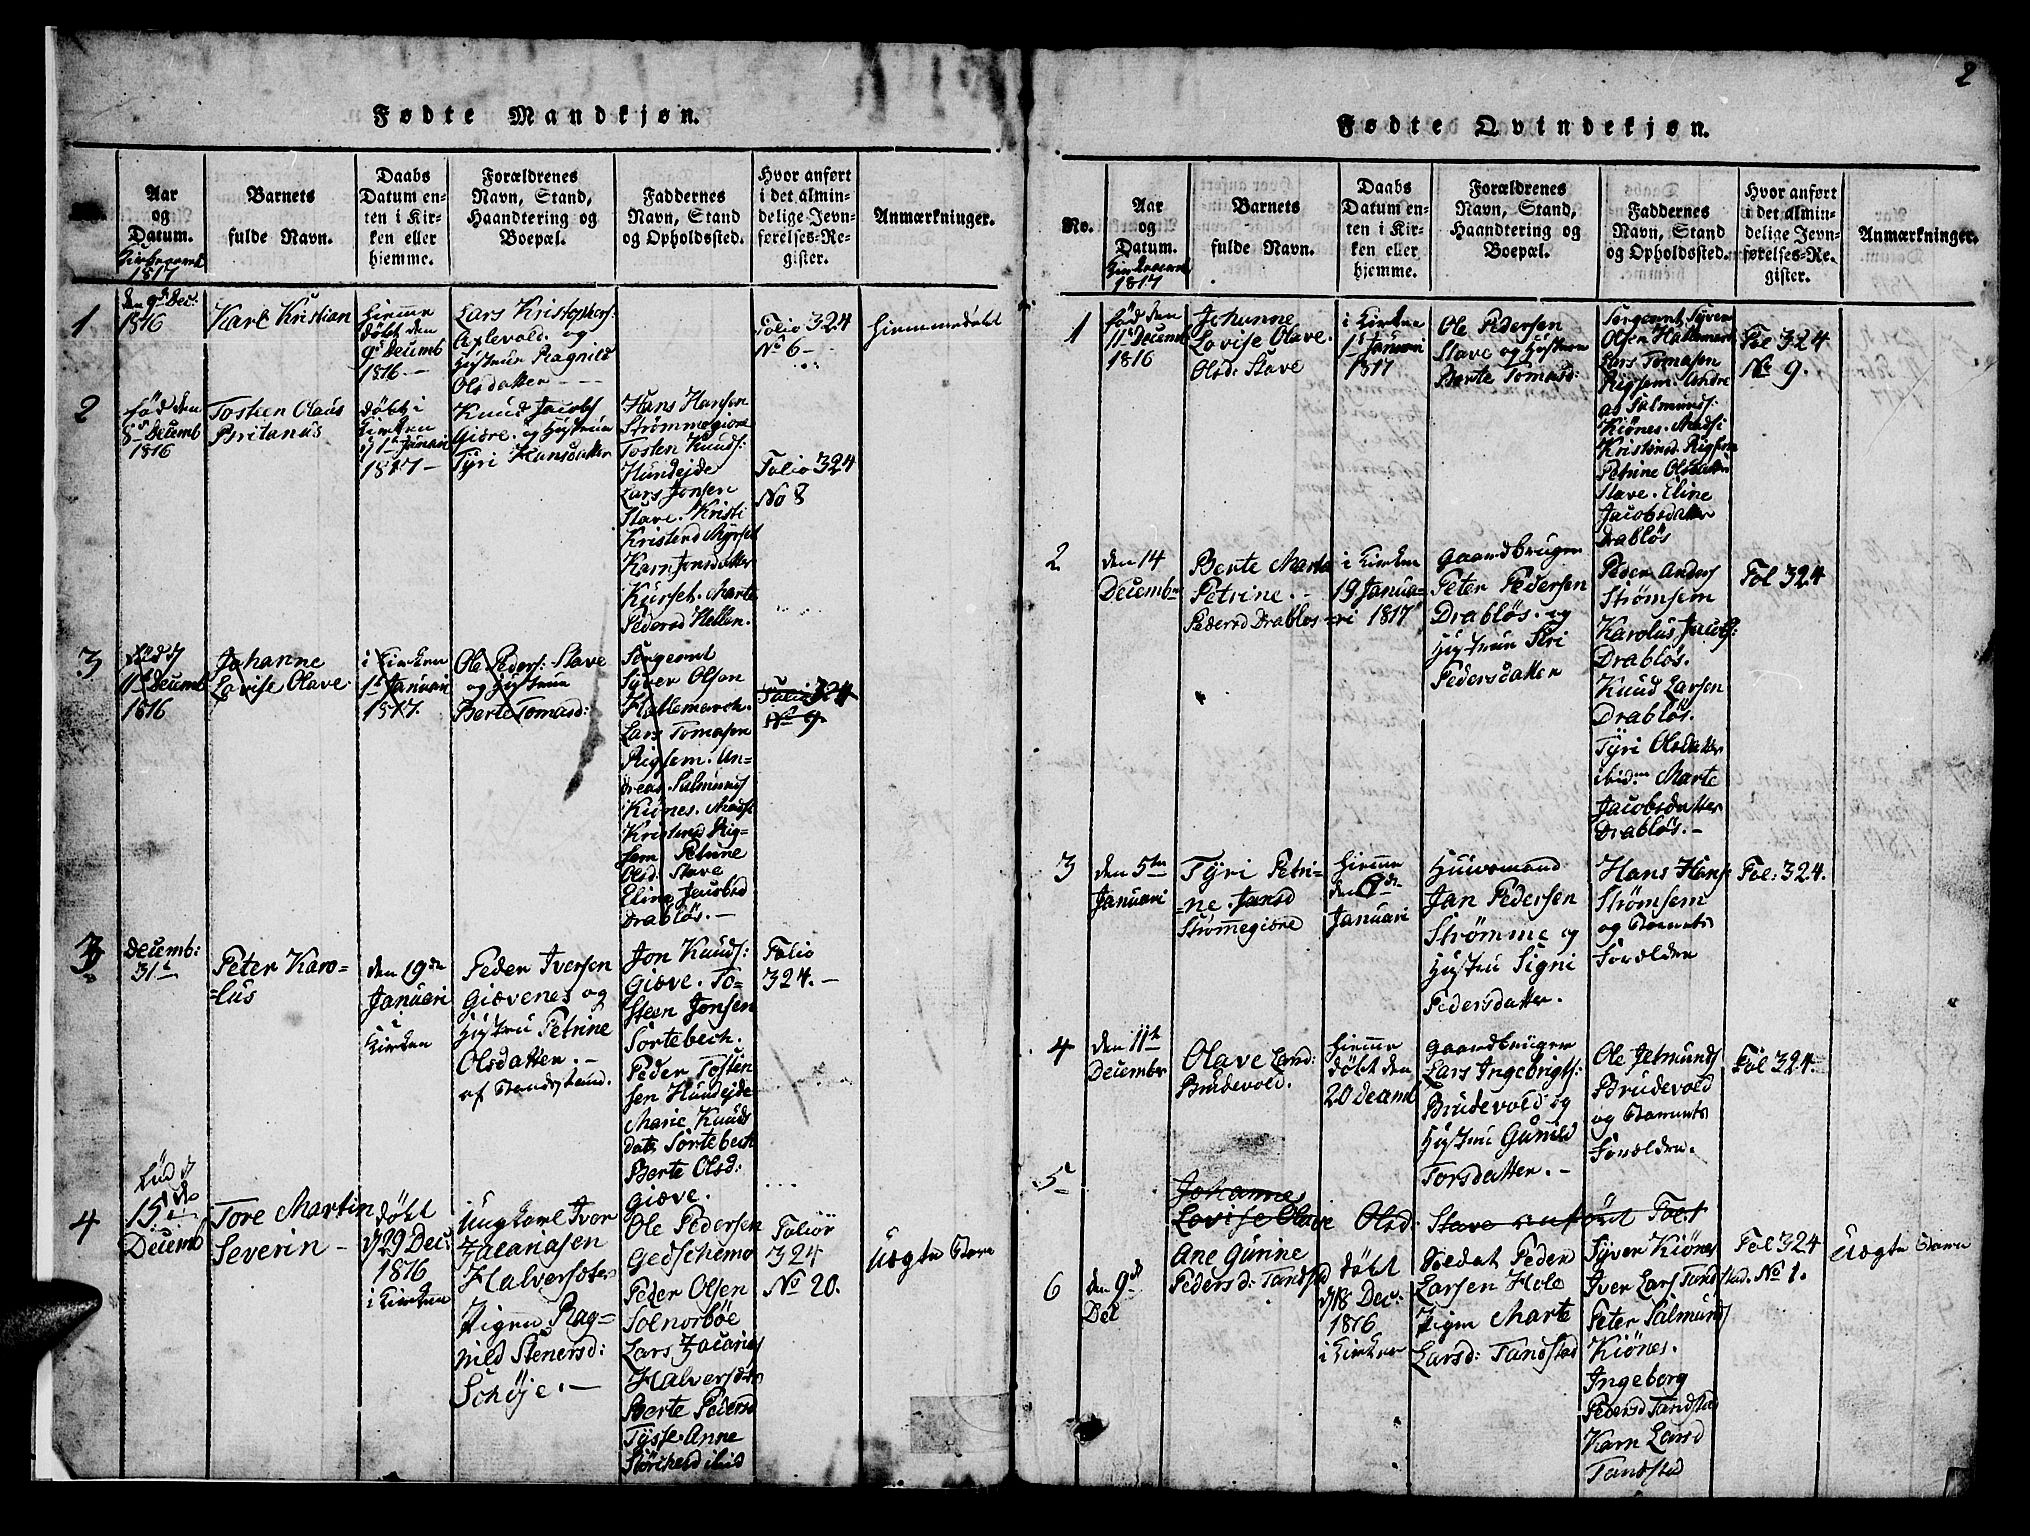 2
Fødte Mandkjøn.
Aar og Datum.
Barnets fulde Navn.
Daabs Datum enten i Kirken eller hjemme.
Forældrenes Navn, Stand, Haandtering og Boepæl.
Faddernes Navn, Stand og Opholdssted.
Hvor anført i det almindelige Jevnførelses-Register.
Anmærkninger.
1817
1
den 9de Dec.
1816
Karl Kristian
hjemme
døbt den
9de Decemb
1816 —
Lars Kristophers:
Axlevold. og
Hustrue Ragnild
Olsdatter — —
Folio 324
No 6 —
hiemmedøbt
2
fød den
8de Decemb
1816
Tosten Olaus
Britanus
døbt i
Kirken
d 1te Januari
1817 —
Knud Jacobs
Giøre. og Hustrue
Tyri Hansdatter
Hans Hansen
Strømmegiøre
Tosten Knuds:
Hundejde
Lars Jonsen
Slave. Kristi
Kristensd Myrset
Karn Jonsdatter
Kurset. Marte
Pedersd Hellen.
Folio 324
No 8
3
fød d
11te Decemb
1816
Johanne
Lovise Olave
i Kirken
1te Januari
1817.
Ole Peders: Slave
og Hustrue
Berte Tomasd:
Sergeant
Syver Olsen
Hatlemarck.
Lars Tomasen
Rigsem. An-
dreas Salmunds
Kiønes. Madsi
Kristensd Rig-
sem Petrine
Olsd. Slave
Eline Jacobsd
Drabløs. —
Folio 324
No 9.
3
Decemb:
31te
Peter Karo-
=lus
den 19de
Januari
i
Kirken
Peder Iversen
Giævenes og
Hustrue Petrine
Olsdatter. —
af Bondestand.
Jon Knuds:
Giæve. To-
steen Jonsen
Sortebech.
Peder Tosten
sen Hundejde
Marie Knuds
datr Sortebech
Berte Olsd:
Giæve.
Folio
324. —
4
fød d
15de
Decemb
Tore Martin
Severin —
døbt
d 29 Dec:
1816
i Kirken
Ungkarl Iver
Zacariasen
Halversoter
Pigen Rag-
nild Stenersd:
Schøje. —
Ole Pedersen
Gedschemo
Peder Olsen
Solnorbøe
Lars Zacarias
Halversoter
Berte Pedersd
Tysse. Anne
Størchesd ibid
Folior
324
No 20.
Uægte Barn
Fødte Qvindekjøn.
No.
Aar og Datum.
Barnets fulde Navn.
Daabs Datum enten i Kirken eller hjemme.
Forældrenes Navn, Stand, Haandtering og Boepæl.
Faddernes Navn, Stand og Opholdssted.
Hvor anført i det almindelige Jevnførelses-Register.
Anmærkninger.
1817
1
fød den
11te Decemb
1816
Johanne
Lovise Olave.
Olsd: Slave
i Kirken
1te Januari
1817
Ole Pedersen
Slave og Hustrue
Berte Tomasd:
Sergeant Syver
Olsen Hatlemark
Lars Tomasen
Rigsem. Andre
as Salmunds:
Kiønes. Madsi
Kristensd Rigsem
Petrine Olsdatter
Slave. Eline
Jacobsdatter
Drabløs
Fol 324
No 9.
2
den 14
Decembr
Berte Marta
Petrine. —
Pedersd Drabløs
i Kirken
19 Janua-
=ri 1817
Gaardbruger
Peter Pedersen
Drabløs. og
Hustrue Siri
Pedersdatter
Peder Anders
Strømsem
Karolus Jacobs:
Drabløs.
Knud Larsen
Drabløs.
Tyri Olsdatter
ibidm Marte
Jacobsdatter
Drabløs. —
Fol 324
3
den 5te
Januari
Tyri Petri-
=ne. Jansd
Strømmegiøre
hjemme
den 6de
Januari
Huusmand
Jan Pedersen
Strømme og
Hustru Signi
Pedersdatter.
Hans Hans
Strømsem
og Barnets
Forælder
Fol: 324.
4
den 11te
Decembr
Olave Larsd:
Brudevold.
hjemme
døbt den
20 Decemb
Gaardbruger
Lars Ingebrigts:
Brudevold og
Hustru Gunild
Torsdatter. —
Ole Jetmunds
Brudevold
og Barnets
Forælder.
Fol 324.
5
Johanne
Lovise Olave Olsd: Slave
6
den 9de
Dec
Ane Gurine
Pedersd: Tandstad
døbt
d 18 Dec:
1816
i Kirken
Soldat Peder
Larsen Hole
Pigen Marte
Larsd: Tandstad
Syver Kiønes
Iver Lars Tandstad.
Peter Salmunds
Kiønes.
Ingeborg
Pedersd Tandstad
Karn Larsd
Tandstad
Fol 324
No 1.
Uægte Barn